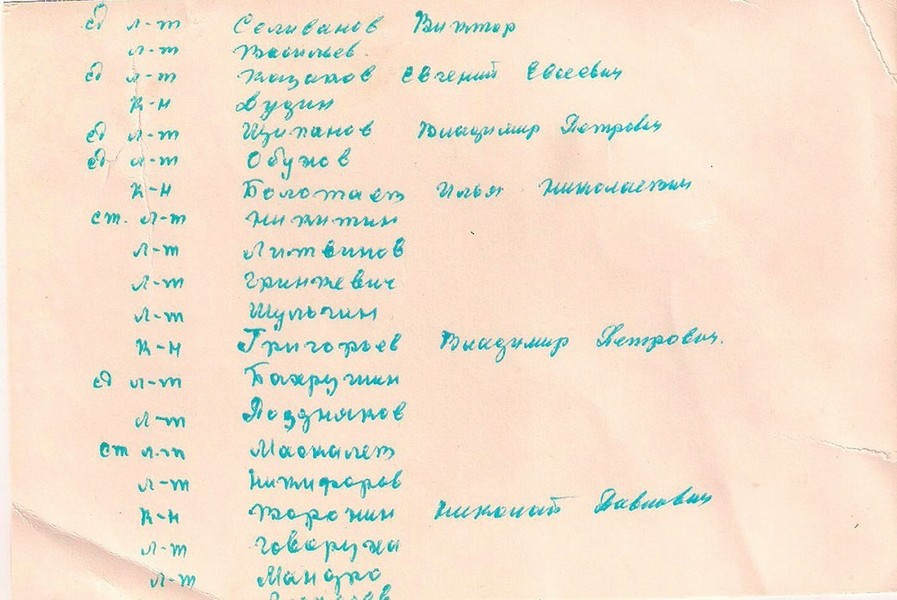 ст л-т Селиванов Виктор
л-т Васильев.
ст л-т Казаков Евгений Евсеевич
к-н Дудин
ст л-т Щипанов Владимир Петрович
ст л-т Обухов
к-н Болотаев Илья Николаевич
ст. л-т Никитин
л-т Литвинов
л-т Гринкевич
л-т Шульгин
к-н Григорьев Владимир Петрович.
ст л-т Бахрушин
л-т Поздняков
ст л-т Маскалев
л-т Никифоров
к-н Воронин Николай Павлович
л-т Говоруха
л-т Мандро